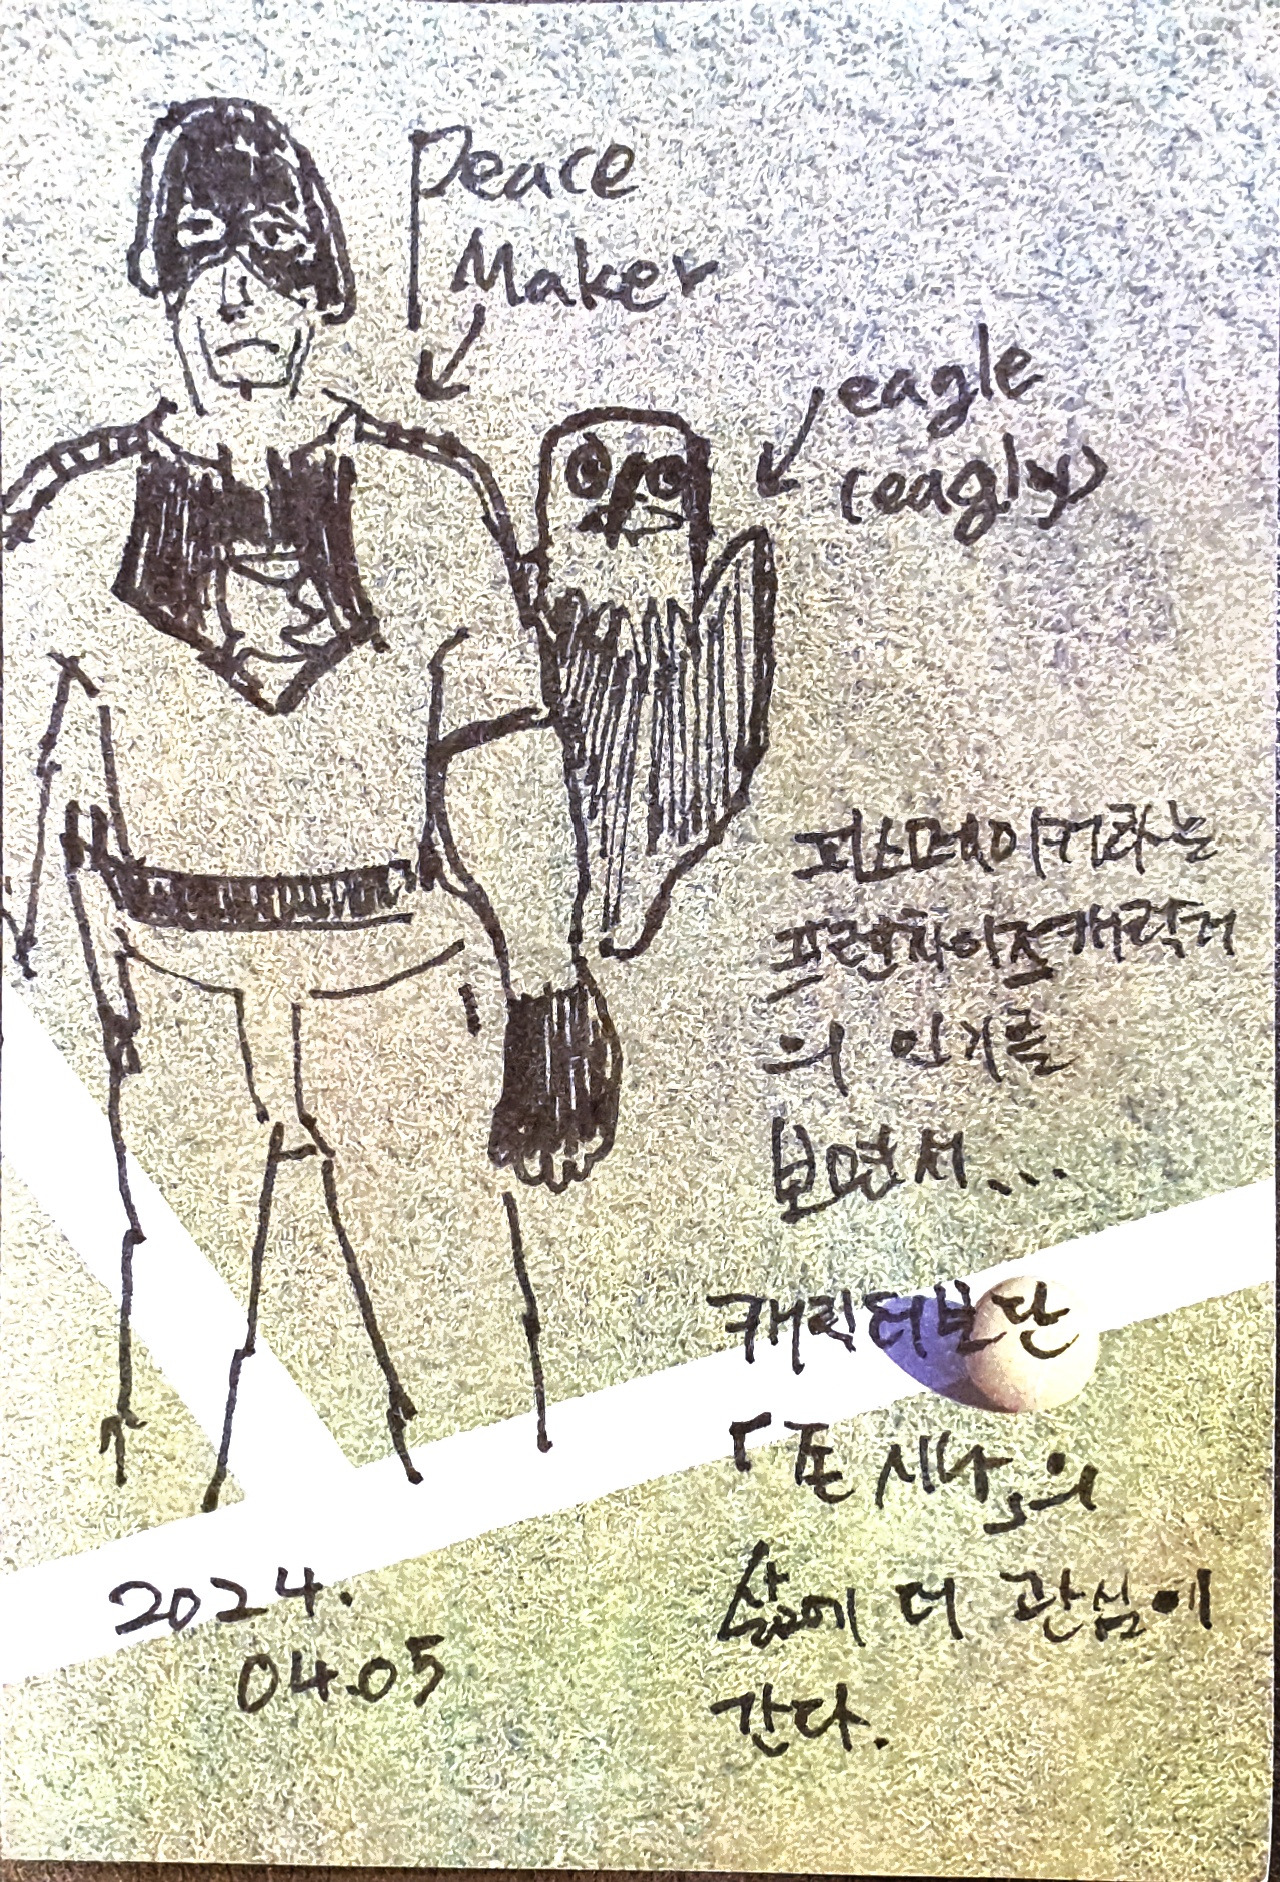 Peace
Maker
eagle
(eagly)
피스메이커라는
프렌차이즈캐릭터
의 인기를
보면서...
캐릭터보단
「존 시나」의
삶에 더 관심에
간다.
2024.
04.05